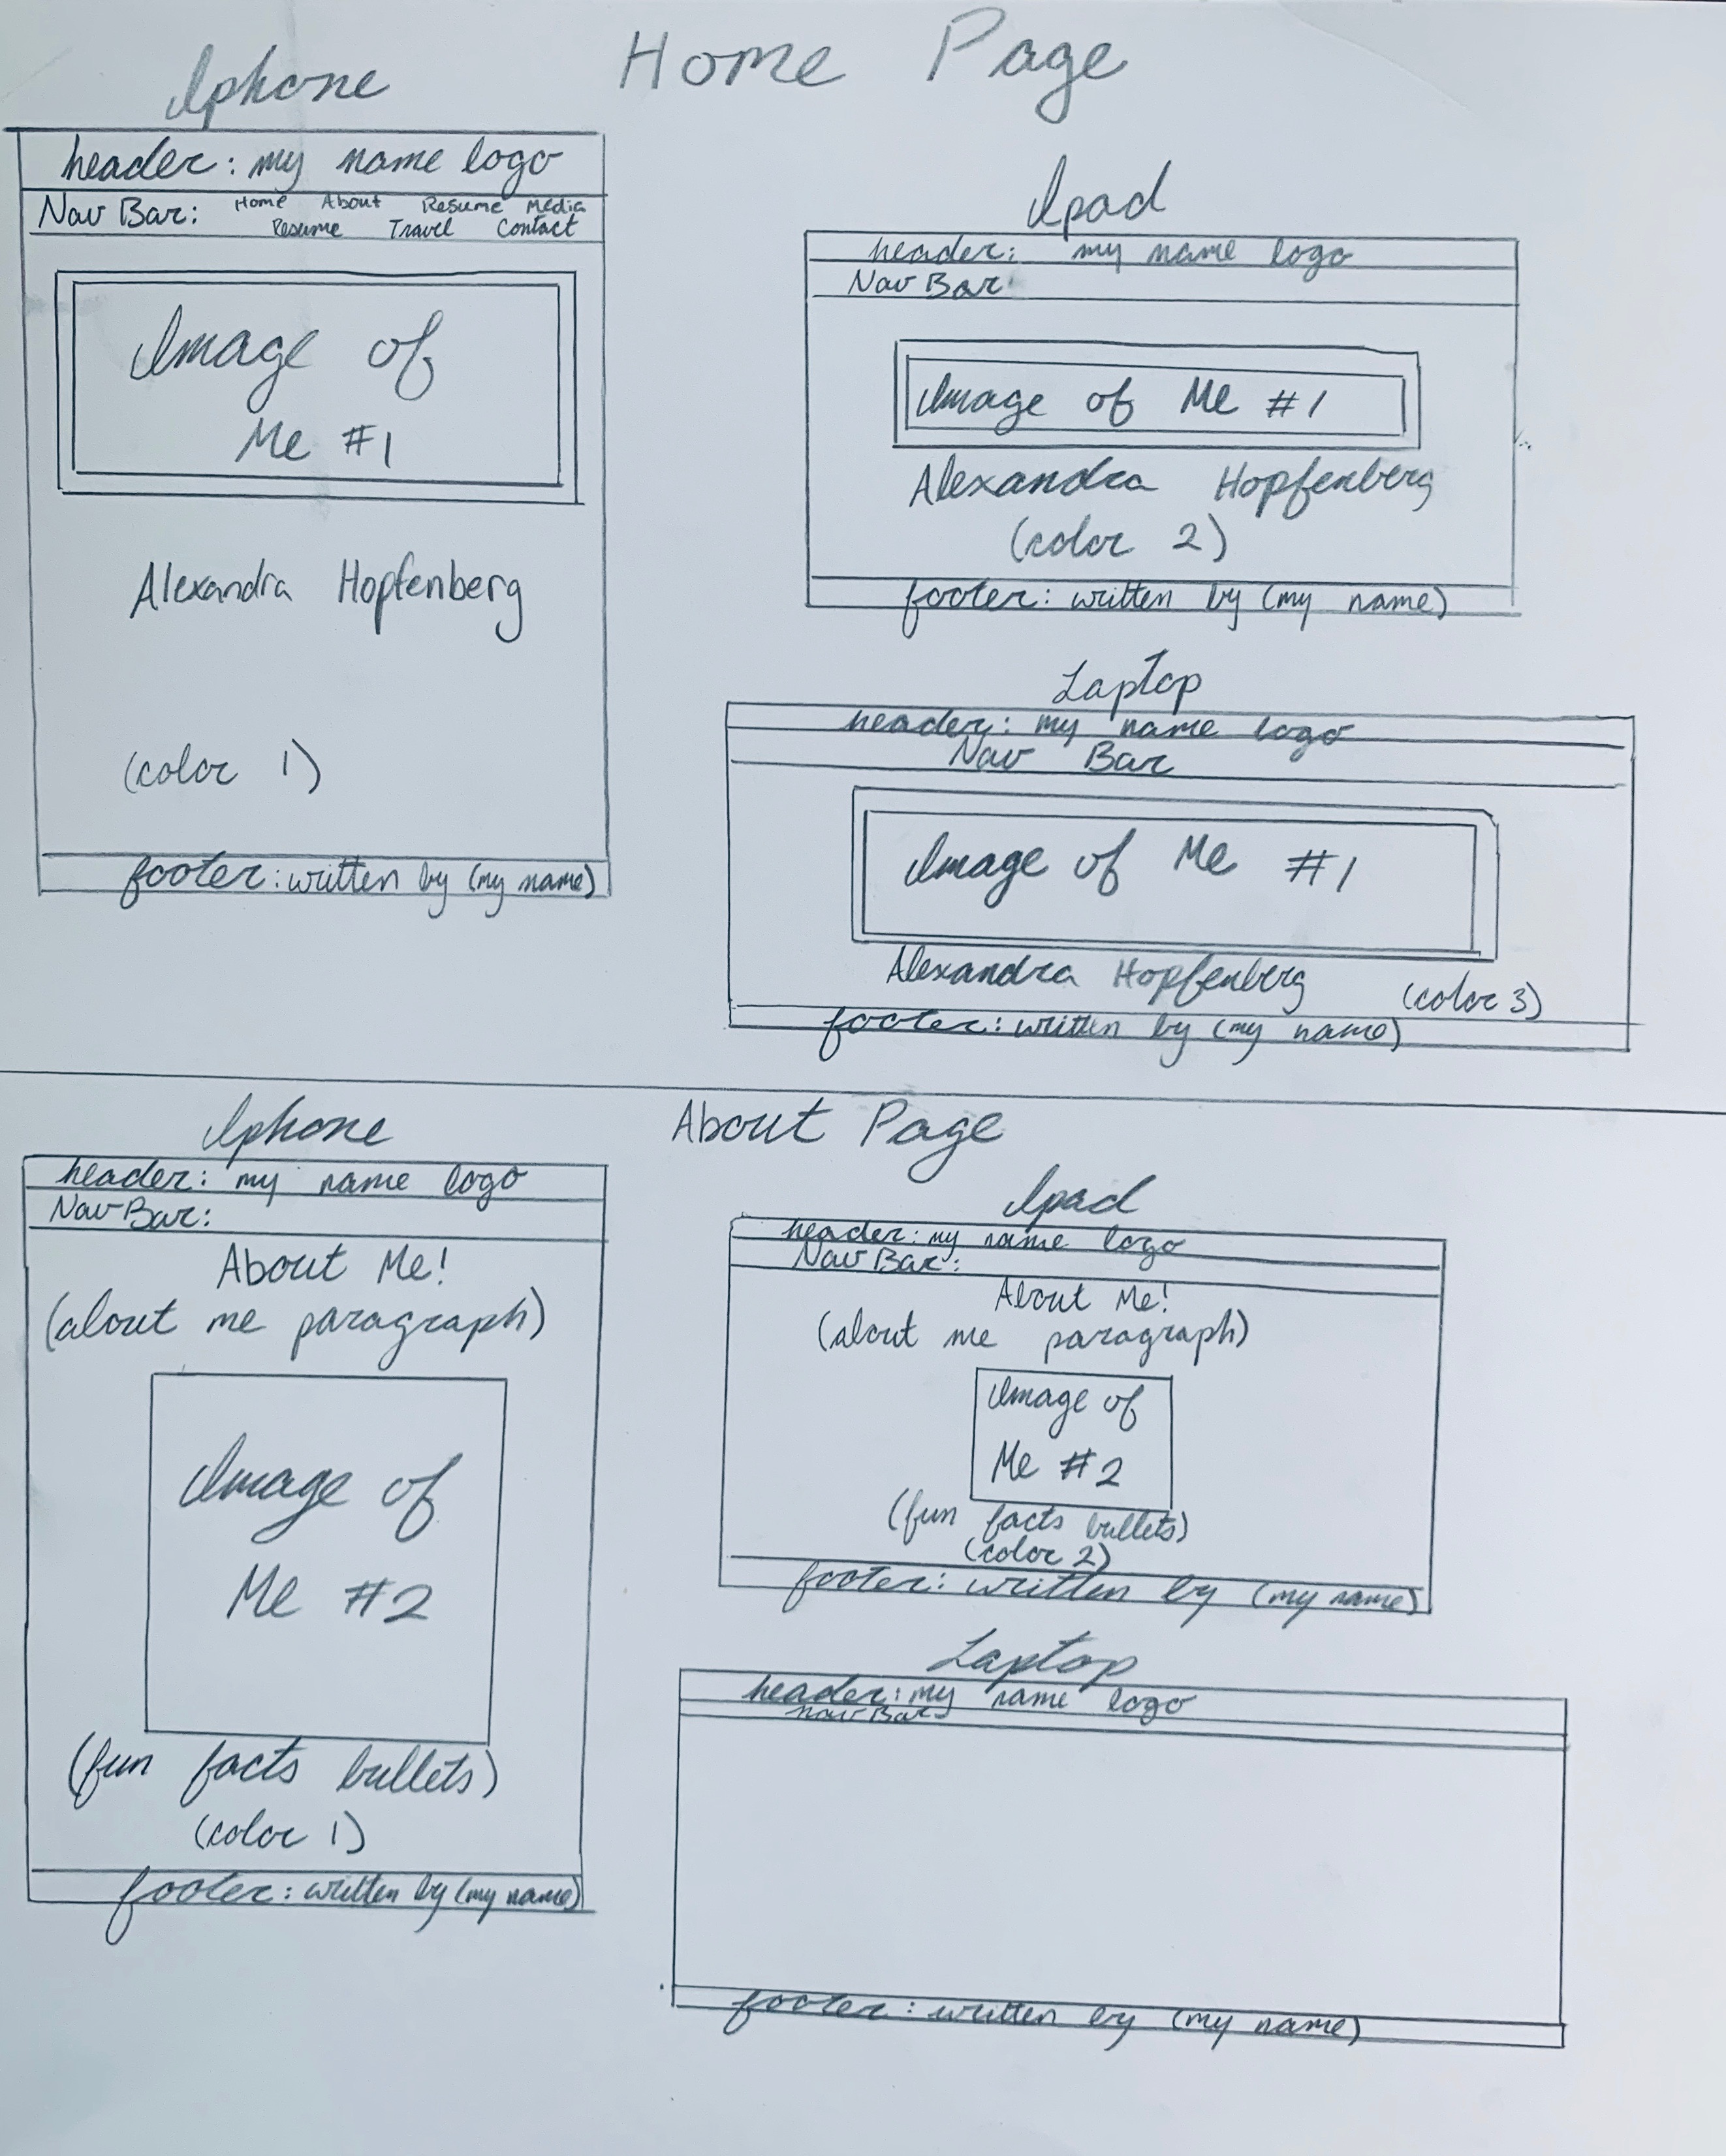 Home Page
Iphone
header: my name logo
Nav Bar: Home About Resume Media
Resume Travel Contact
Image of
Me #1
Alexandra Hopfenberg
(color 1)
footer: written by (my name)
Ipad
header: my name logo
Nav Bar:
Image of Me #1
Alexandra Hopfenberg
(color 2)
footer: written by (my name)
Laptop
header: my name logo
Nav Bar
Image of Me #1
Alexandra Hopfenberg
(color 3)
footer: written by (my name)
About Page
Iphone
header: my name logo
Nav Bar:
About Me!
(about me paragraph)
Image of
Me #2
(fun facts bullets)
(color 1)
footer: written by (my name)
Ipad
header: my name logo
Nav Bar:
About Me!
(about me paragraph)
Image of
Me #2
(fun facts bullets)
(color 2)
footer: written by (my name)
Laptop
header: my name logo
Nav Bar
footer: written by (my name)